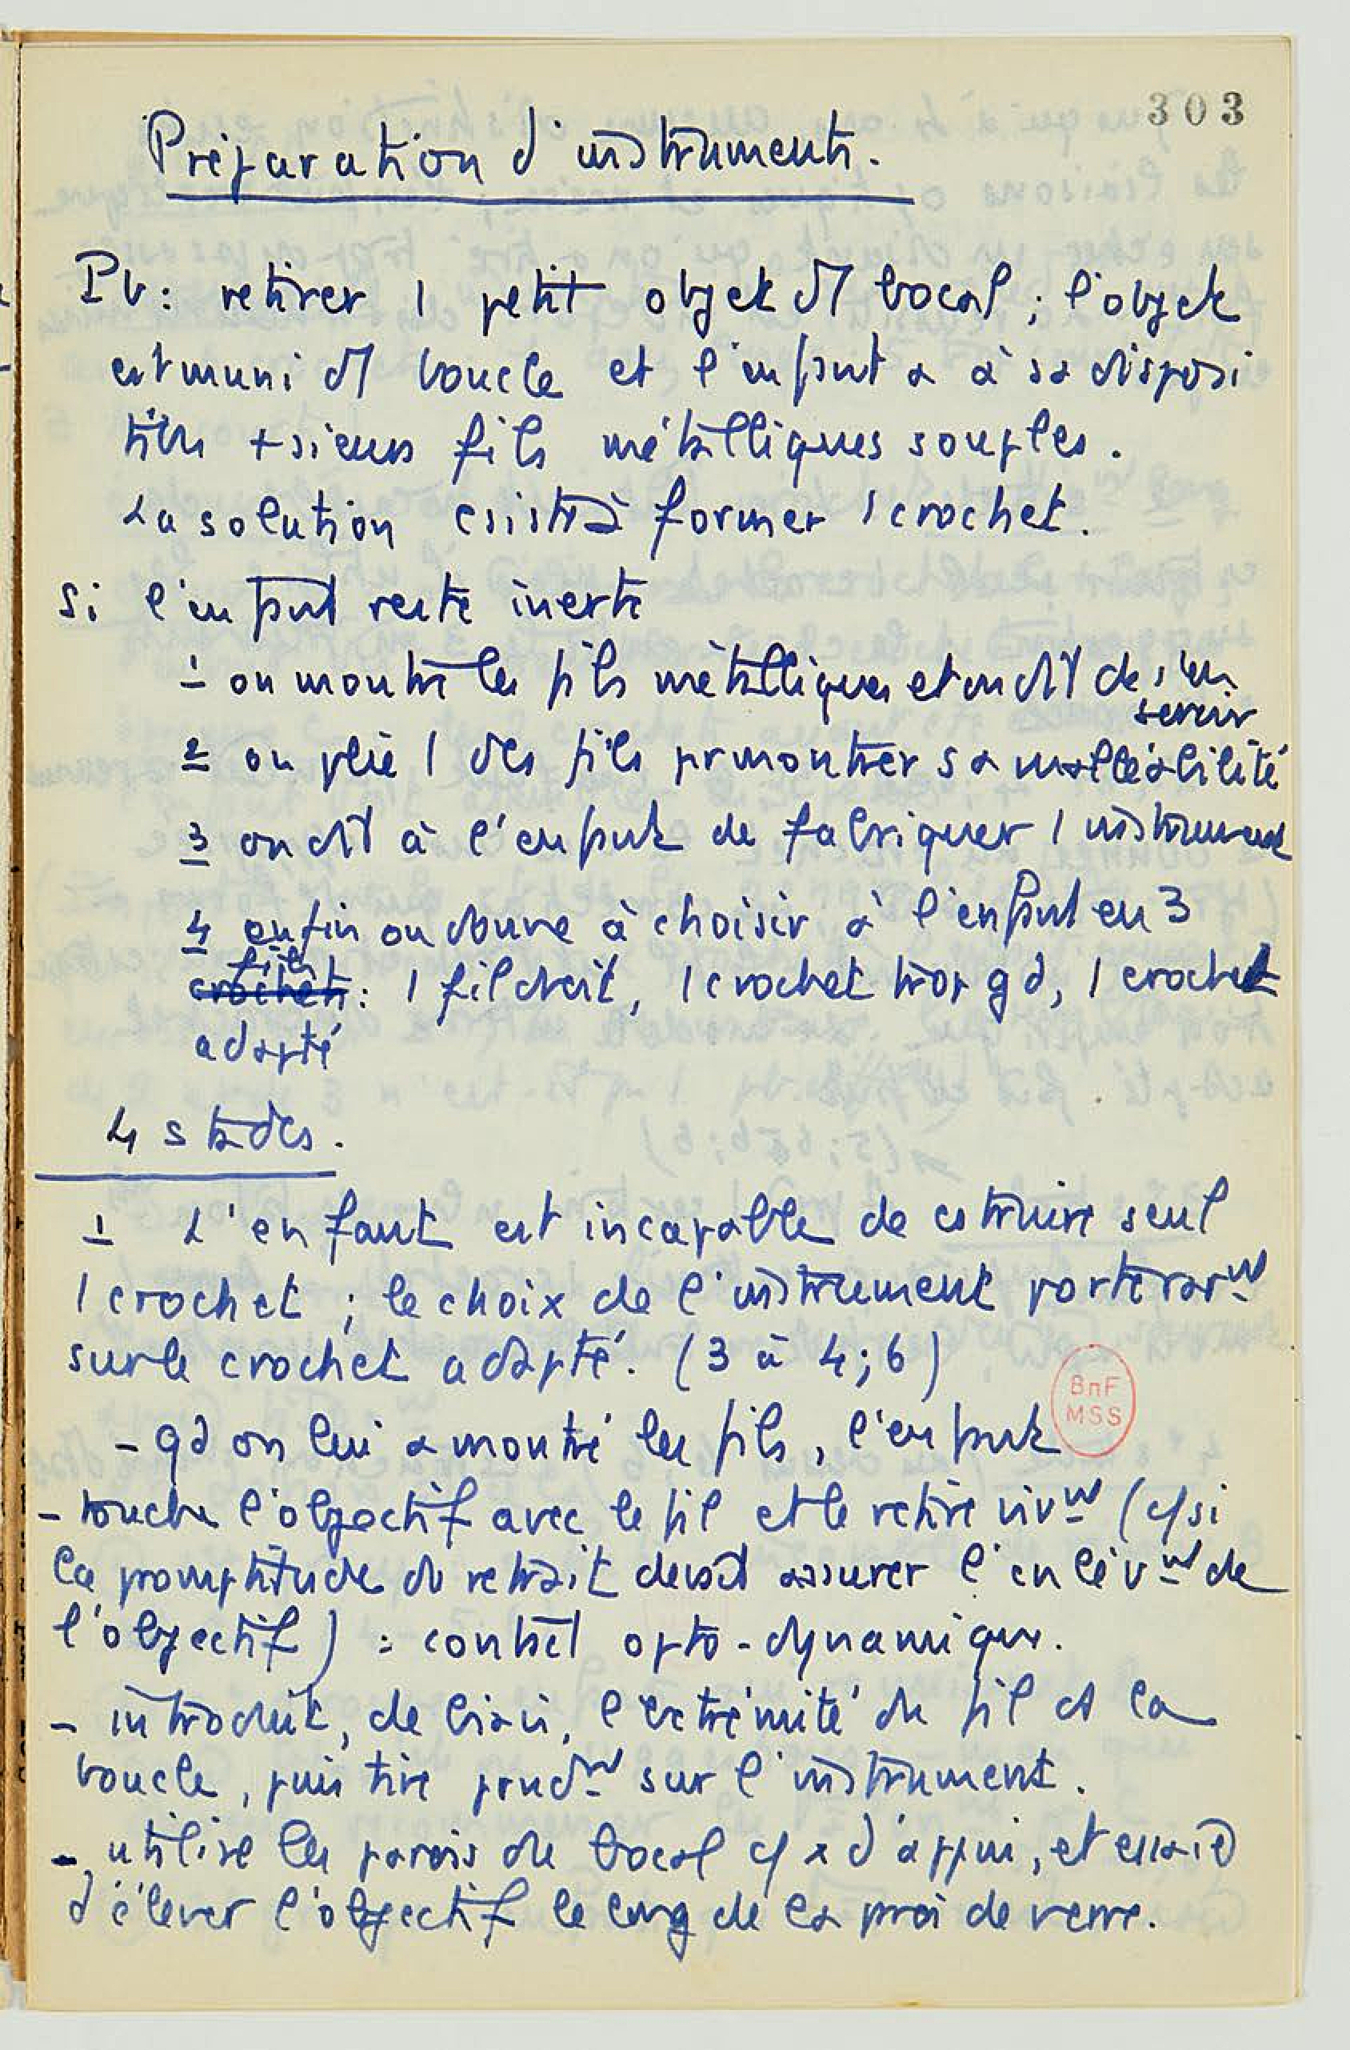 303
Préparation d'instruments.
Pb : retirer 1 petit objet d'1 bocal ; l'objet
est muni d'1 boucle et l'enfant a à sa disposi
tion +sieurs fils métalliques souples.
La solution csiste à former 1 crochet.
si l'enfant reste inerte
1 on montre les fils métalliques et on dit de s'en
servir
2 on plie 1 des fils pr montrer sa malléabilité
3 on dit à l'enfant de fabriquer 1 instrument
4 enfin on donne à choisir à l'enfant en 3
fils
crochets : 1 fil droit, 1 crochet trop gd, 1 crochet
adapté
4 stades.
1 L'enfant est incapable de cstruire seul
1 crochet ; le choix de l'instrument portera
sur le crochet adapté. (3 à 4;6)
BnF
MSS
- qd on lui a montré les fils, l'enfant
- touche l'objectif avec le fil et le retire vivmt (c/si
la promptitude du retrait devait assurer l'enlèvmt de
l'objectif) : contrôl opto-dynamique.
- introduit, de biais, l'extrémité du fil ds la
boucle, puis tire prudmt sur l'instrument.
- utilise les parois du bocal c/ x d'appui, et essaie
d'élever l'objectif le long de la paroi de verre.